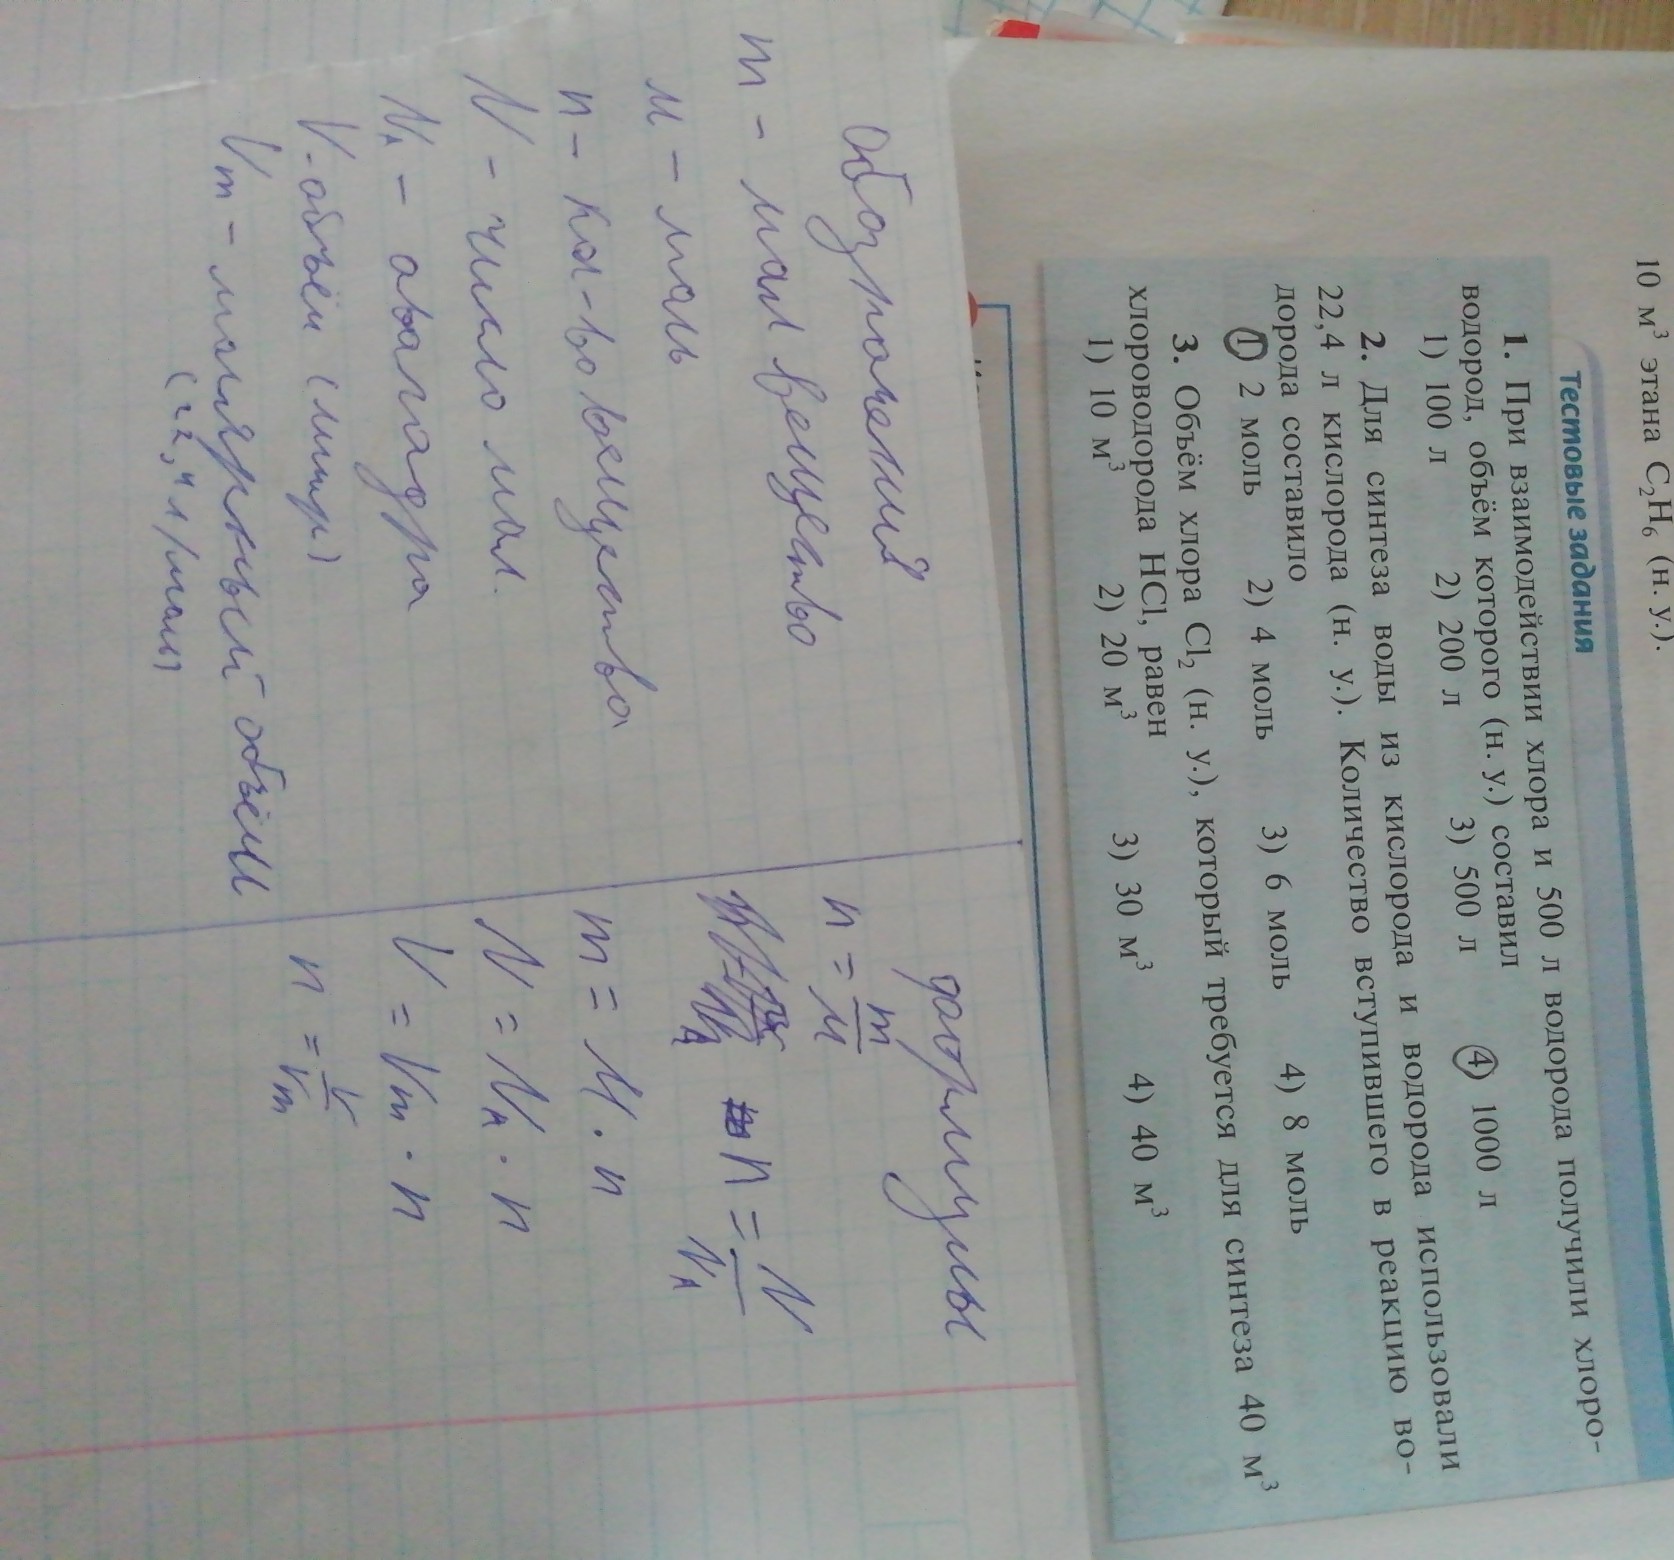 10 м³ этана C₂H₆ (н. у.).
Тестовые задания
1. При взаимодействии хлора и 500 л водорода получили хлоро-
водород, объём которого (н. у.) составил
1) 100 л 2) 200 л 3) 500 л 4) 1000 л
2. Для синтеза воды из кислорода и водорода использовали
22,4 л кислорода (н. у.). Количество вступившего в реакцию во-
дорода составило
1) 2 моль 2) 4 моль 3) 6 моль 4) 8 моль
3. Объём хлора Cl₂ (н. у.), который требуется для синтеза 40 м³
хлороводорода HCl, равен
1) 10 м³ 2) 20 м³ 3) 30 м³ 4) 40 м³
обозначений
m - мол вещество
M - моль
n - кол-во вещества
N - число мол.
N_A - авагадра
V - объём (литр)
V_m - молярный объём
(22,4 л/моль)
формулы
n = m/M
n = N/N_A
m = M · n
N = N_A · n
V = V_m · n
n = V/V_m